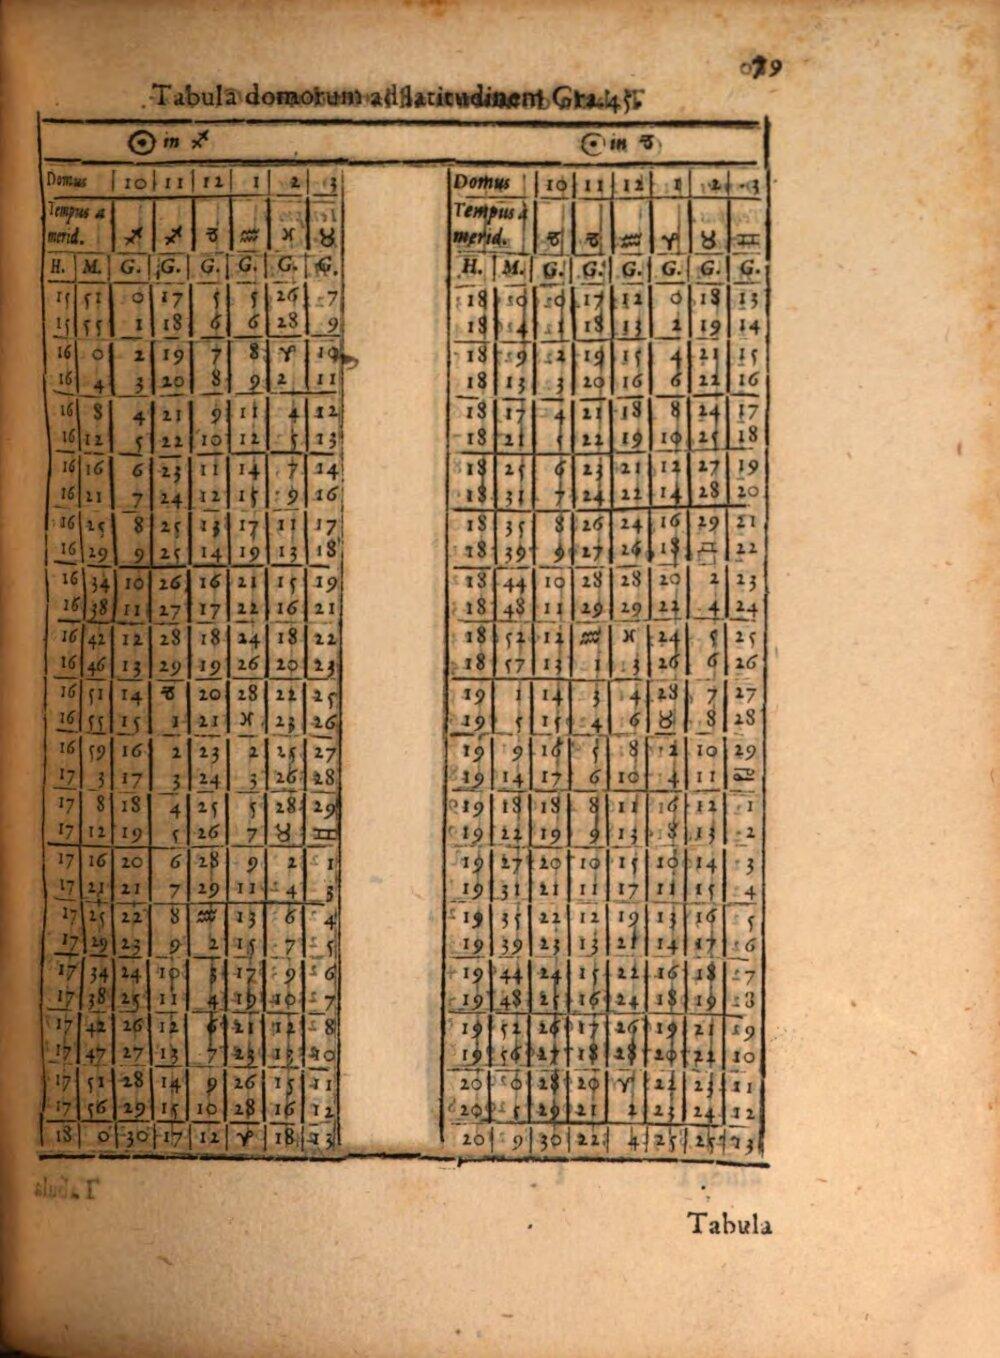 79
Tabula domorum ad latitudinem Gra. 45.
☉ in ♐
Domus 10 11 12 1 2 3
Tempus a merid. ♐ ♐ ♑ ♒ ♓ ♉
H. M. G. G. G. G. G. G.
15 51 0 17 5 5 26 7
15 55 1 18 6 6 28 9
16 0 2 19 7 8 ♈ 10
16 4 3 20 8 9 2 11
16 8 4 21 9 11 4 12
16 12 5 22 10 12 5 13
16 16 6 23 11 14 7 14
16 21 7 24 12 15 9 16
16 25 8 25 13 17 11 17
16 29 9 25 14 19 13 18
16 34 10 26 16 21 15 19
16 38 11 27 17 22 16 21
16 42 12 28 18 24 18 22
16 46 13 29 19 26 20 23
16 51 14 ♑ 20 28 22 25
16 55 15 1 21 ♓ 23 26
16 59 16 2 23 2 25 27
17 3 17 3 24 3 26 28
17 8 18 4 25 5 28 29
17 12 19 5 26 7 ♉ ♊
17 16 20 6 28 9 2 1
17 21 21 7 29 11 4 3
17 25 22 8 ♒ 13 6 4
17 29 23 9 2 15 7 5
17 34 24 10 3 17 9 6
17 38 25 11 4 19 10 7
17 42 26 12 6 21 12 8
17 47 27 13 7 23 13 10
17 51 28 14 9 26 15 11
17 56 29 15 10 28 16 12
18 0 30 17 12 ♈ 18 13
☉ in ♑
Domus 10 11 12 1 2 3
Tempus à merid. ♑ ♑ ♒ ♈ ♉ ♊
H. M. G. G. G. G. G. G.
18 0 0 17 12 0 18 13
18 4 1 18 13 2 19 14
18 9 2 19 15 4 21 15
18 13 3 20 16 6 22 16
18 17 4 21 18 8 24 17
18 21 5 22 19 10 25 18
18 25 6 23 21 12 27 19
18 31 7 24 22 14 28 20
18 35 8 26 24 16 29 21
18 39 9 27 26 18 ♊ 22
18 44 10 28 28 20 2 23
18 48 11 29 29 22 4 24
18 52 12 ♒ ♓ 24 5 25
18 57 13 1 3 26 6 26
19 1 14 3 4 28 7 27
19 5 15 4 6 ♉ 8 28
19 9 16 5 8 2 10 29
19 14 17 6 10 4 11 ♋
19 18 18 8 11 6 12 1
19 22 19 9 13 8 13 2
19 27 20 10 15 10 14 3
19 31 21 11 17 11 15 4
19 35 22 12 19 13 16 5
19 39 23 13 21 14 17 6
19 44 24 15 22 16 18 7
19 48 25 16 24 18 19 8
19 52 26 17 26 19 21 9
19 56 27 18 28 20 22 10
20 0 28 20 ♈ 22 23 11
20 5 29 21 2 23 24 12
20 9 30 22 4 25 25 13
Tabula